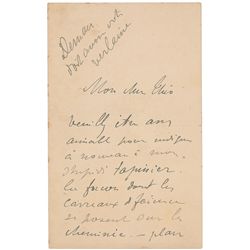 Demain
verlaine
Mon cher Elio
Veuillez être assez
aimable pour indiquer
à nouveau à mon
stupide tapissier
la façon dont les
carreaux de faïence
se posent sur la
cheminée – plan